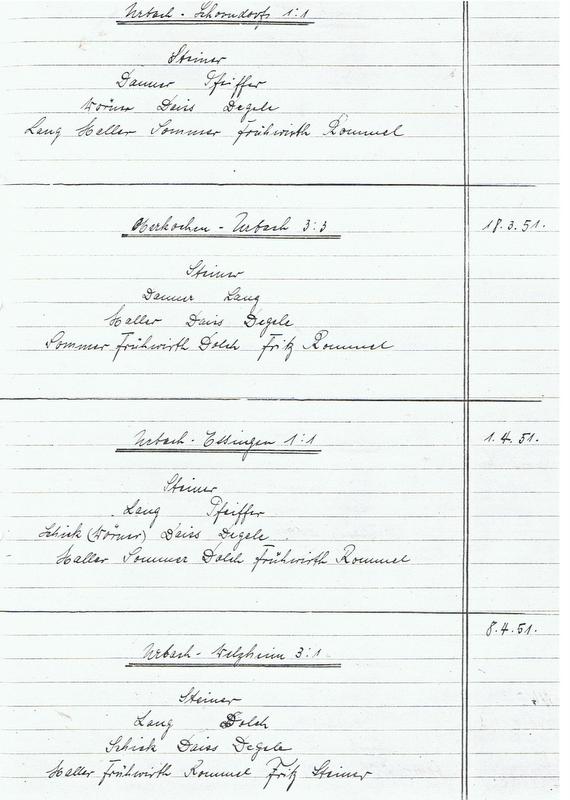 Urbach - Schorndorf 1:1
Steiner
Danner Pfeiffer
Wörner Daiss Degele
Lang Haller Sommer Frühwirth Rommel
Oberkochen - Urbach 3:3 18.3.51.
Steiner
Danner Lang
Haller Daiss Degele
Sommer Frühwirth Dolch Fritz Rommel
Urbach - Essingen 1:1 1.4.51.
Steiner
Lang Pfeiffer
Schiek (Wörner) Daiss Degele
Haller Sommer Dolch Frühwirth Rommel
8.4.51.
Urbach - Welzheim 3:1
Steiner
Lang Dolch
Schiek Daiss Degele
Haller Frühwirth Rommel Fritz Steiner